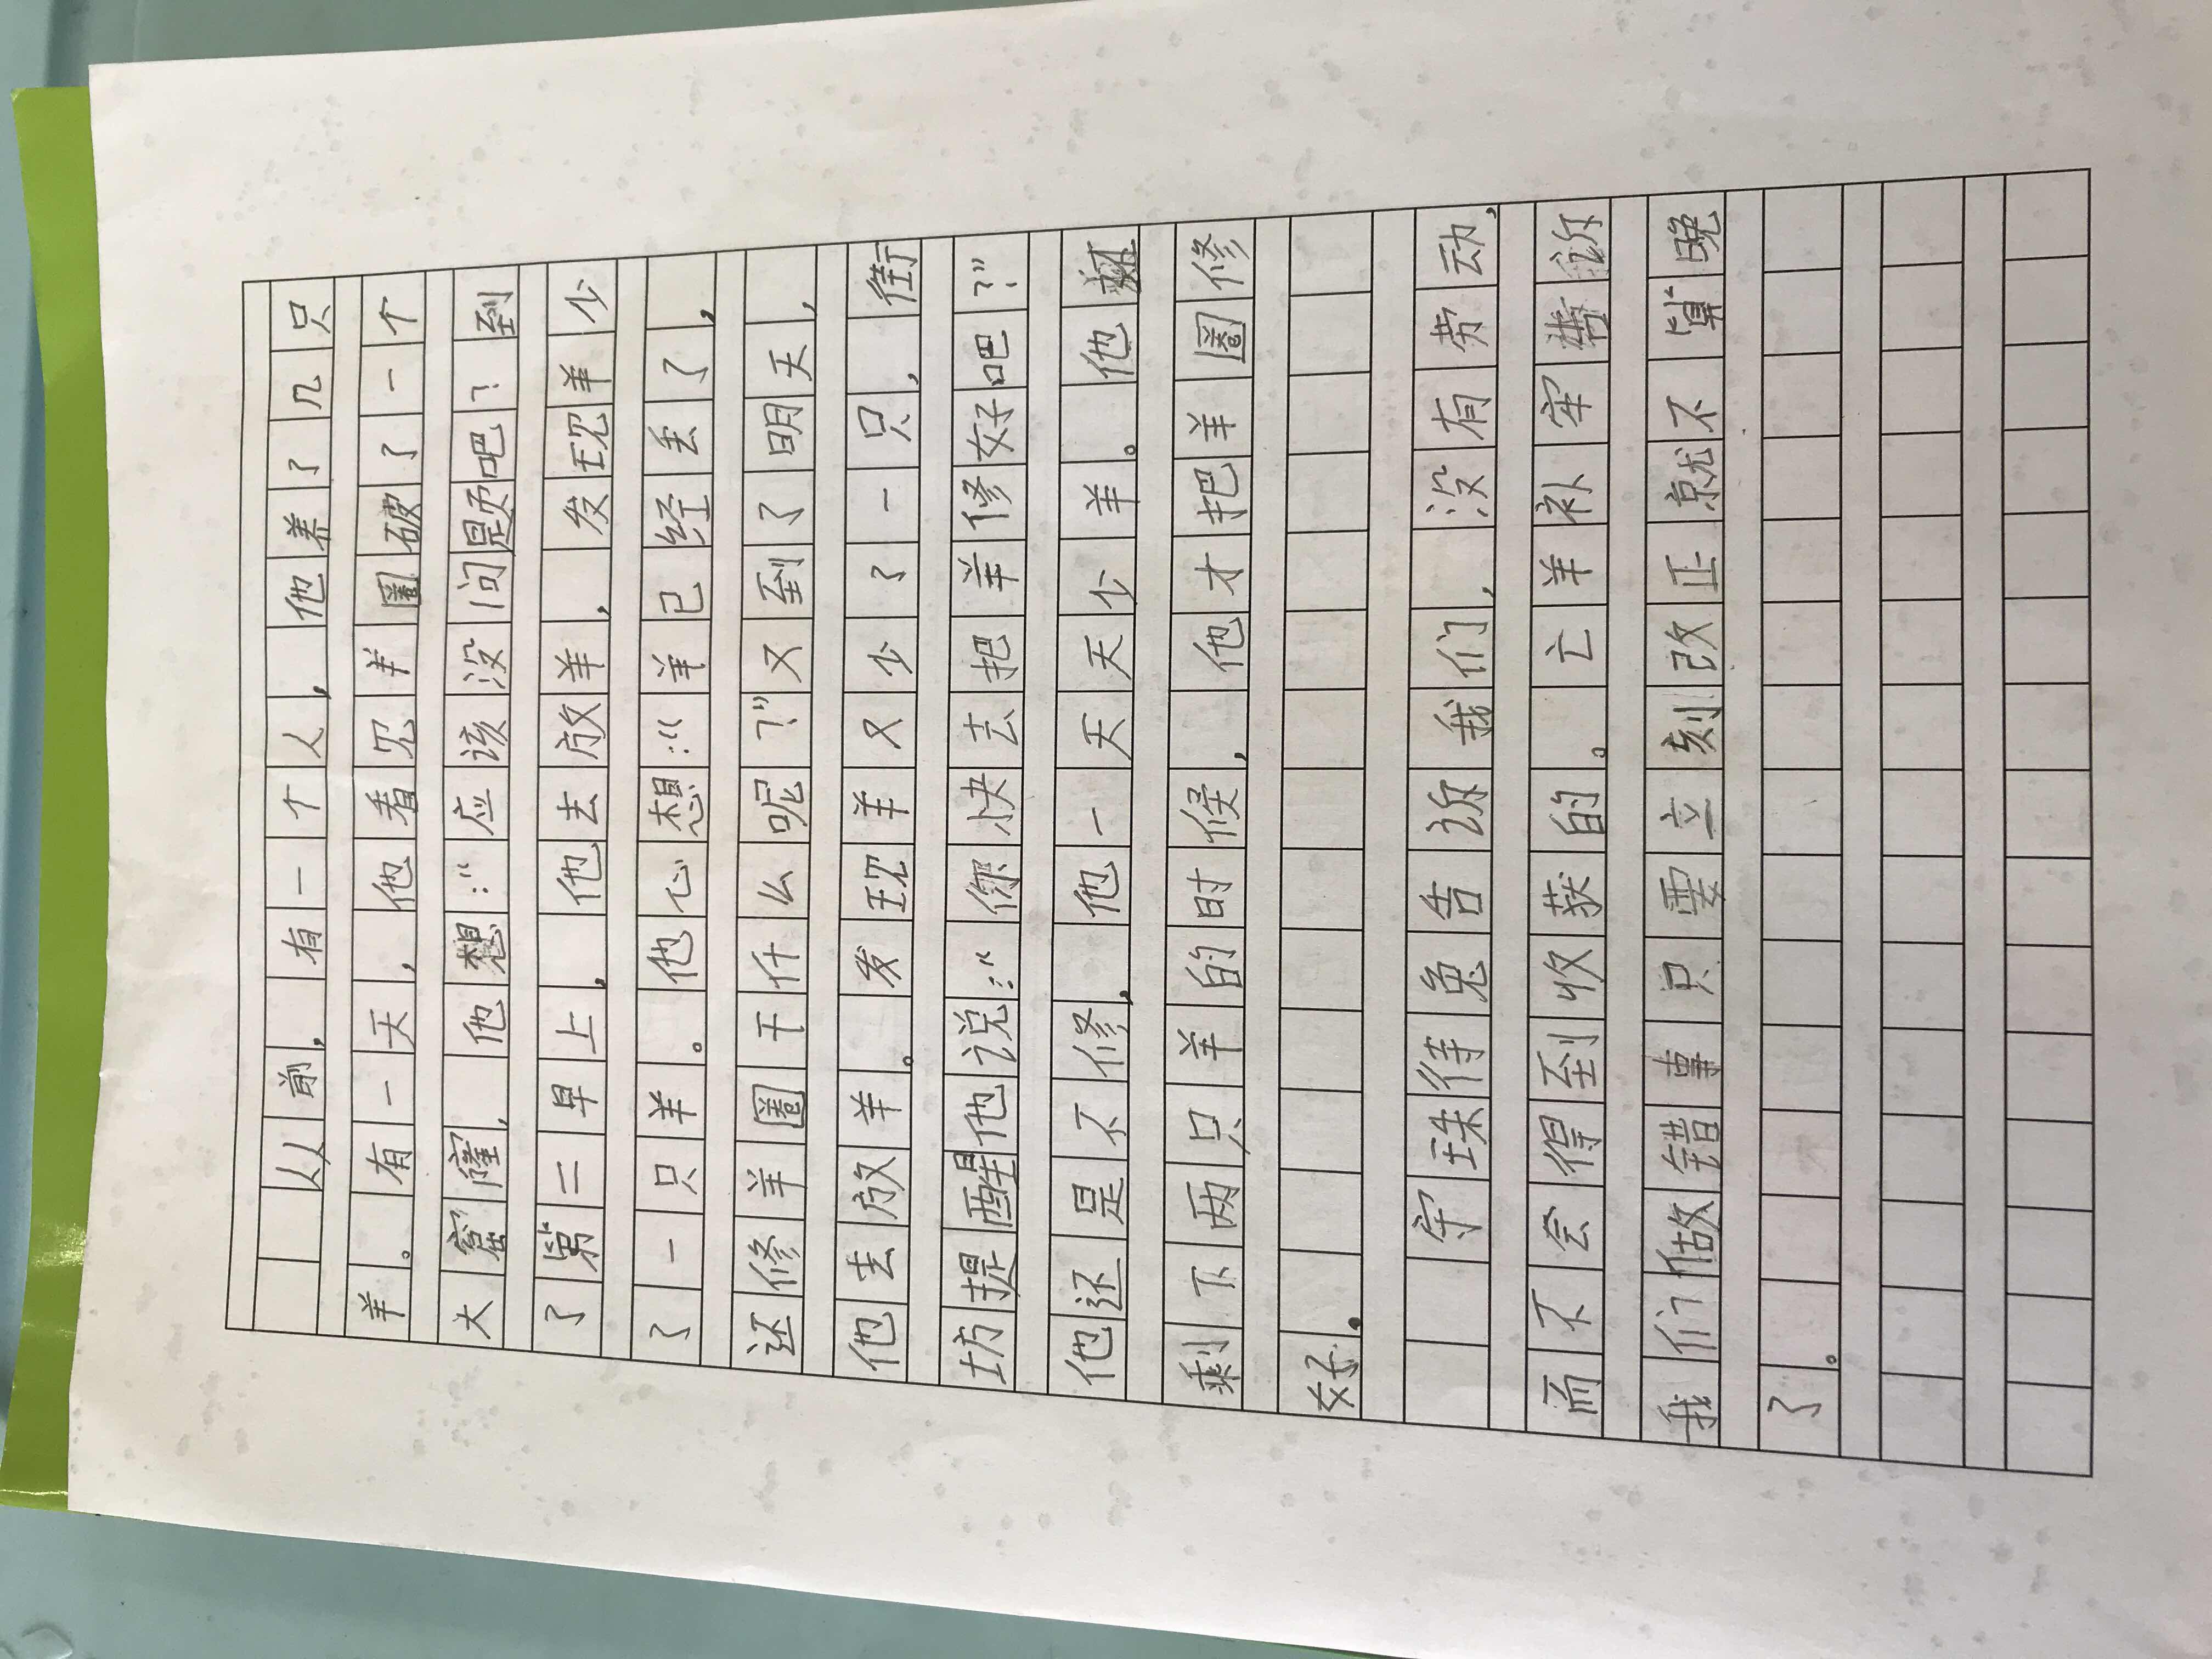 从前，有一个人，他养了几只
羊。有一天，他看见羊圈破了一个
大窟窿，他想：“应该没问题吧？到
了第二早上，他去放羊，发现羊少
了一只羊。他心想：“羊已经丢了，
还修羊圈干什么呢？”又到了明天，
他去放羊。发现羊又少了一只，街
坊提醒他说：“你快去把羊修好吧？”
他还是不修，他一天天少羊。他
剩下两只羊的时候，他才把羊圈修
好。
守珠待兔告诉我们，没有劳动，
而不会得到收获的。亡羊补牢诉
我们做错事只要立刻改正就不算晚
了。